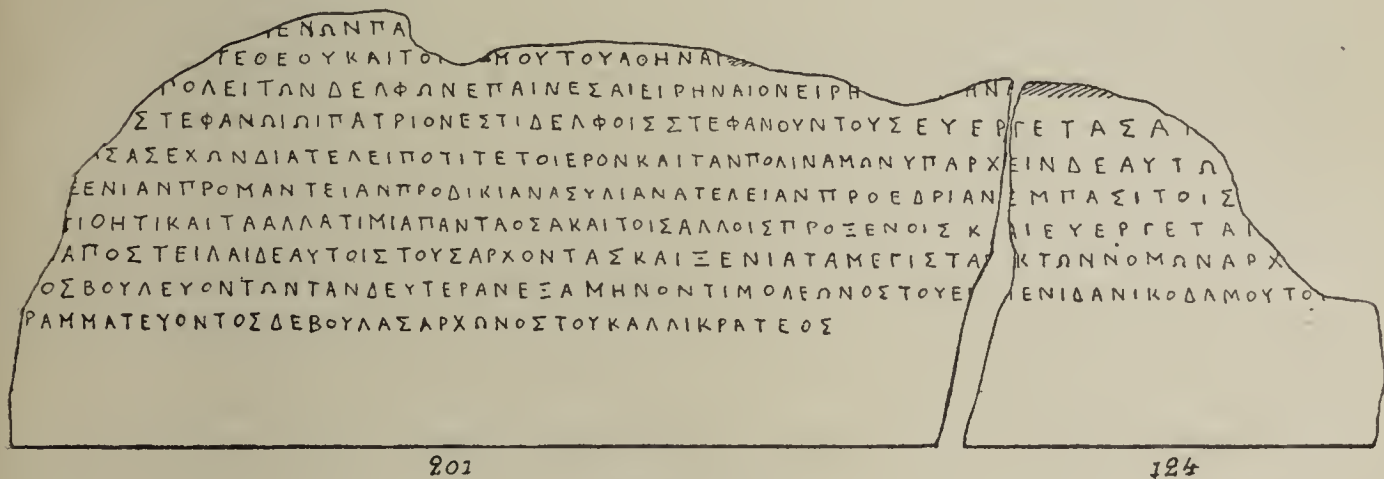 ΕΝΩΝΠΑ
ΤΕΘΕΟΥΚΑΙΤΟΥ ΜΟΥΤΟΥΑΘΗΝΑΙ
ΠΟΛΕΙΤΩΝΔΕΛΦΩΝΕΠΑΙΝΕΣΑΙΕΙΡΗΝΑΙΟΝΕΙΡΗ ΗΝ
ΣΤΕΦΑΝΩΙΩΙΠΑΤΡΙΟΝΕΣΤΙΔΕΛΦΟΙΣΣΤΕΦΑΝΟΥΝΤΟΥΣΕΥΕΡΓΕΤΑΣΑΥ
ΙΣΑΣΕΧΩΝΔΙΑΤΕΛΕΙΠΟΤΙΤΕΤΟΙΕΡΟΝΚΑΙΤΑΝΠΟΛΙΝΑΜΩΝΥΠΑΡΧΕΙΝΔΕΑΥΤΩ
ΞΕΝΙΑΝΠΡΟΜΑΝΤΕΙΑΝΠΡΟΔΙΚΙΑΝΑΣΥΛΙΑΝΑΤΕΛΕΙΑΝΠΡΟΕΔΡΙΑΝΕΜΠΑΣΙΤΟΙΣ
ΤΙΘΗΤΙΚΑΙΤΑΑΛΛΑΤΙΜΙΑΠΑΝΤΑΟΣΑΚΑΙΤΟΙΣΑΛΛΟΙΣΠΡΟΞΕΝΟΙΣ ΚΑΙΕΥΕΡΓΕΤΑΙ
ΑΠΟΣΤΕΙΛΑΙΔΕΑΥΤΟΙΣΤΟΥΣΑΡΧΟΝΤΑΣΚΑΙΞΕΝΙΑΤΑΜΕΓΙΣΤΑ ΚΤΩΝΝΟΜΩΝΑΡΧ
ΟΣΒΟΥΛΕΥΟΝΤΩΝΤΑΝΔΕΥΤΕΡΑΝΕΞΑΜΗΝΟΝΤΙΜΟΛΕΩΝΟΣΤΟΥΕΜ ΜΕΝΙΔΑΝΙΚΟΔΑΜΟΥΤΟΥ
ΡΑΜΜΑΤΕΥΟΝΤΟΣΔΕΒΟΥΛΑΣΑΡΧΩΝΟΣΤΟΥΚΑΛΛΙΚΡΑΤΕΟΣ
201 124